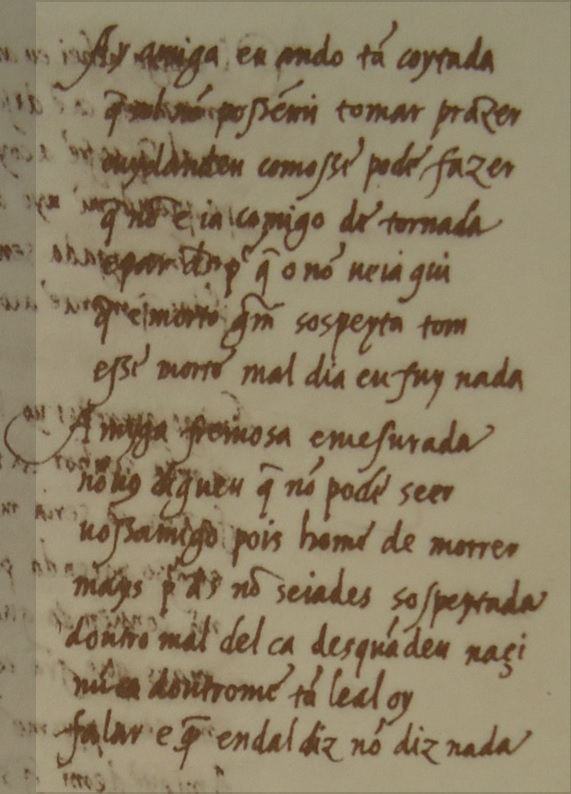 Ay amiga eu ando tã coytada
q̃ mh nõ possẽmi tomar prazer
cuydandeu comosse pode fazer
q̃ nõ e ia comigo de tornada
epar ds p̃ q̃ o nõ ueia qui
q̃ e morto grã sospeyta tom
esse morto mal dia eu fuy nada
Amiga fremosa emesurada
nõ uo digueu q̃ nõ pode seer
uossamigo pois home de morrer
mays p̃ ds nõ seiades sospeytada
doutro mal del ca desquãdeu naçi
nũca doutrome tã leal oy
falar e q̃ endal diz nõ diz nada